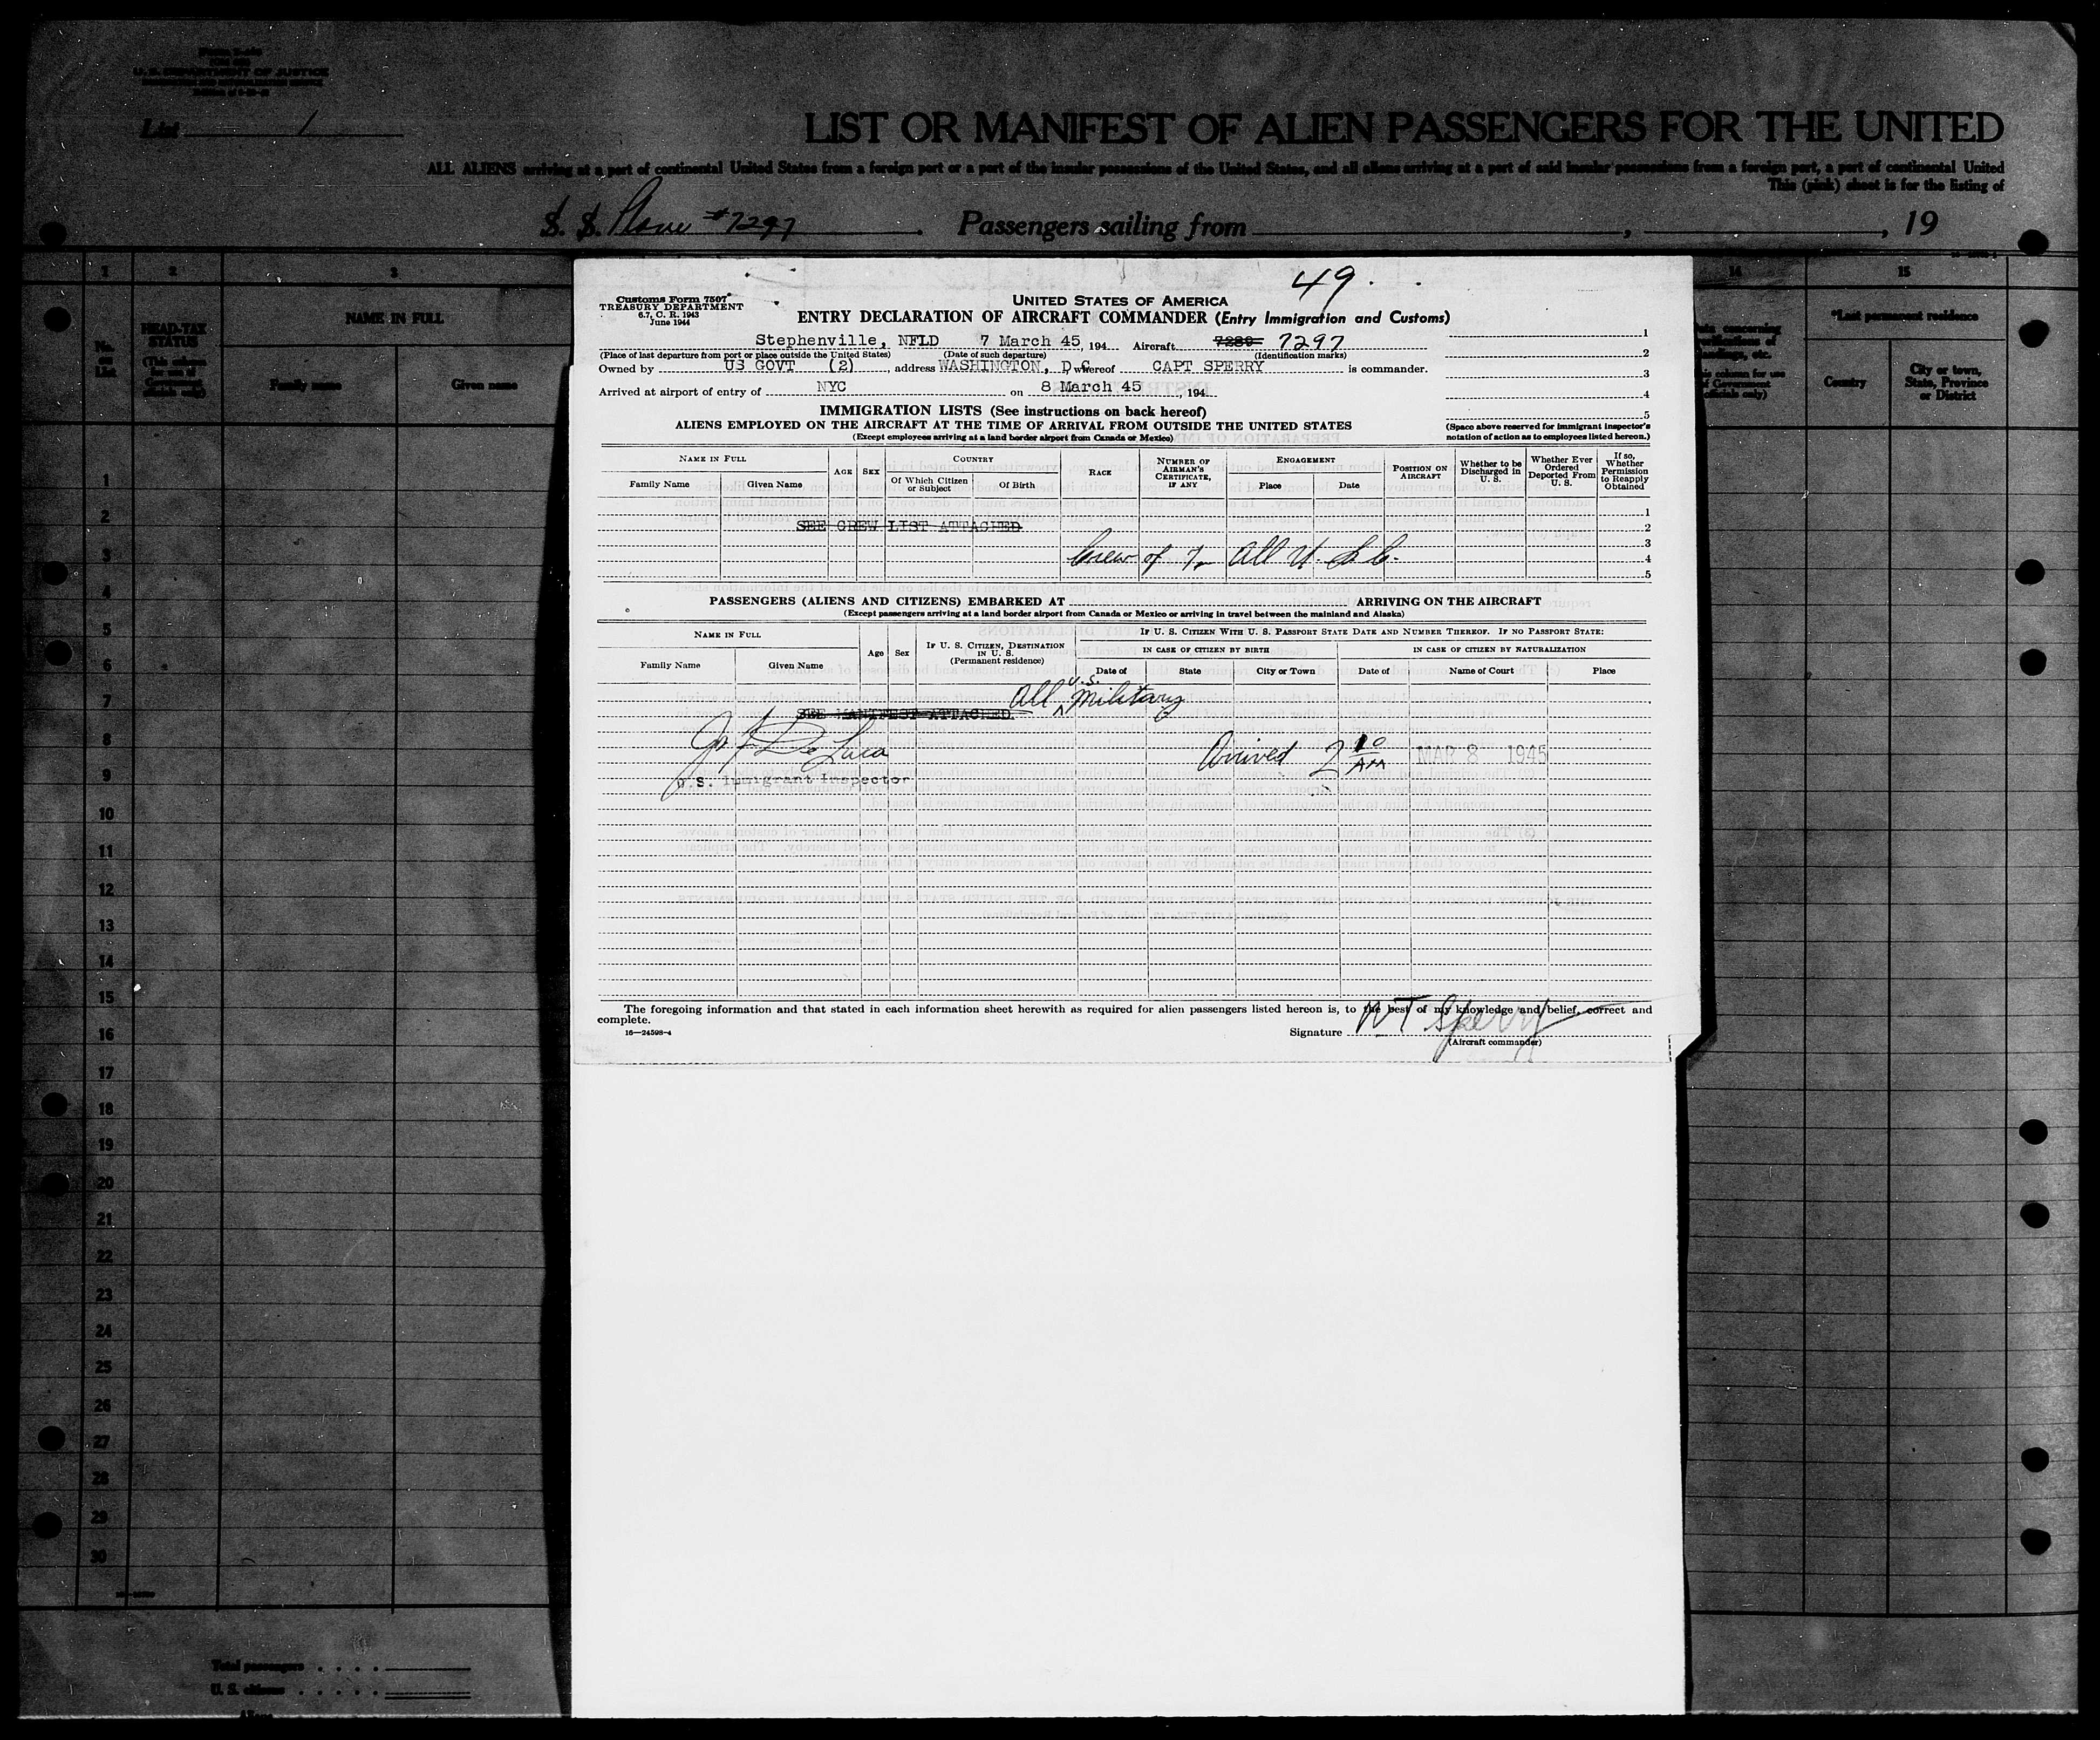 U. S. DEPARTMENT OF JUSTICE
List 1
LIST OR MANIFEST OF ALIEN PASSENGERS FOR THE UNITED
ALL ALIENS arriving at a port of continental United States from a foreign port or a port of the insular possessions of the United States, and all aliens arriving at a port of said insular possessions from a foreign port, a port of continental United
This (pink) sheet is for the listing of
S. S. Plane #7297. Passengers sailing from , , 19
1 2 3 14 15
No. on List
HEAD-TAX STATUS
(This column for use of Government officials only)
NAME IN FULL
Family name Given name
*Last permanent residence
Country
City or town, State, Province or District
49.
Customs Form 7507
TREASURY DEPARTMENT
6.7, C. R. 1943
June 1944
UNITED STATES OF AMERICA
ENTRY DECLARATION OF AIRCRAFT COMMANDER (Entry Immigration and Customs)
Stephenville, NFLD 7 March 45, 194 Aircraft 7289 7297
(Place of last departure from port or place outside the United States) (Date of such departure) (Identification marks)
Owned by US GOVT (2), address WASHINGTON, D C whereof CAPT SPERRY is commander.
Arrived at airport of entry of NYC on 8 March 45, 194
1
2
3
4
5
(Space above reserved for immigrant inspector's notation of action as to employees listed hereon.)
IMMIGRATION LISTS (See instructions on back hereof)
ALIENS EMPLOYED ON THE AIRCRAFT AT THE TIME OF ARRIVAL FROM OUTSIDE THE UNITED STATES
(Except employees arriving at a land border airport from Canada or Mexico)
NAME IN FULL
Family Name Given Name
AGE SEX
COUNTRY
Of Which Citizen or Subject Of Birth
RACE
NUMBER OF AIRMAN'S CERTIFICATE, IF ANY
ENGAGEMENT
Place Date
POSITION ON AIRCRAFT
Whether to be Discharged in U. S.
Whether Ever Ordered Deported From U. S.
If so, Whether Permission to Reapply Obtained
1
SEE CREW LIST ATTACHED 2
3
Crew of 7- All U. S. C. 4
5
PASSENGERS (ALIENS AND CITIZENS) EMBARKED AT ARRIVING ON THE AIRCRAFT
(Except passengers arriving at a land border airport from Canada or Mexico or arriving in travel between the mainland and Alaska)
NAME IN FULL
Family Name Given Name
Age Sex
IF U. S. CITIZEN, DESTINATION IN U. S.
(Permanent residence)
IF U. S. CITIZEN WITH U. S. PASSPORT STATE DATE AND NUMBER THEREOF. IF NO PASSPORT STATE:
IN CASE OF CITIZEN BY BIRTH IN CASE OF CITIZEN BY NATURALIZATION
Date of State City or Town Date of Name of Court Place
All U.S. Military
SEE MANIFEST ATTACHED
De Luca
U.S. Immigrant Inspector
Arrived 2 10 AM MAR 8 1945
The foregoing information and that stated in each information sheet herewith as required for alien passengers listed hereon is, to the best of my knowledge and belief, correct and
complete.
16—24598-4
Signature W T Sperry
(Aircraft commander)
1
2
3
4
5
6
7
8
9
10
11
12
13
14
15
16
17
18
19
20
21
22
23
24
25
26
27
28
29
30
Total passengers
U. S. citizens
Aliens